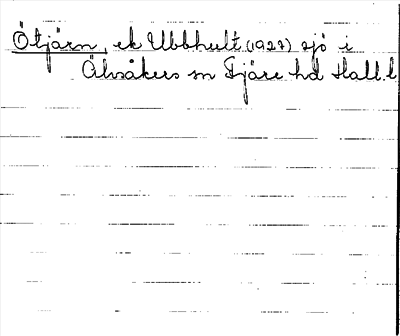 Ötjärn, ek Ubbhult (1927) sjö i
Älvsåkers sn Fjäre hd Hall.l